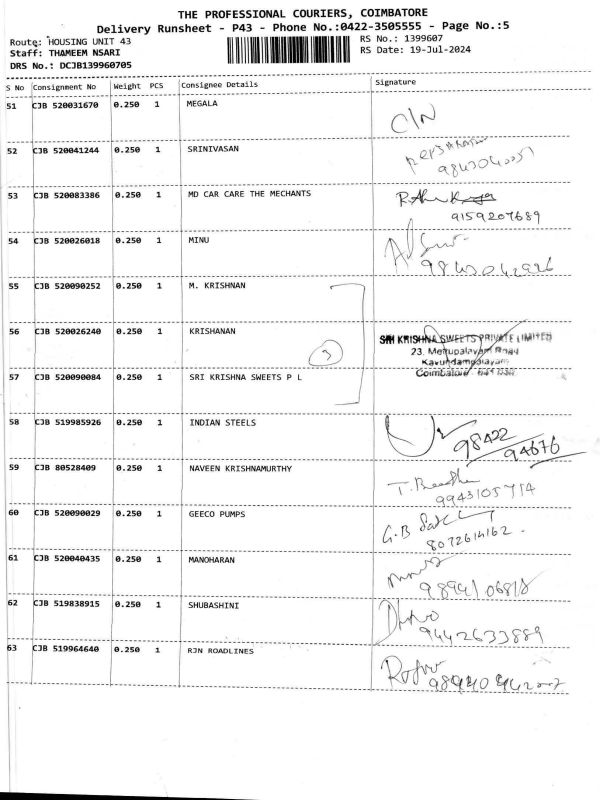 THE PROFESSIONAL COURIERS, COIMBATORE
Delivery Runsheet - P43 - Phone No.:0422-3505555 - Page No.:5
Route: HOUSING UNIT 43 RS No.: 1399607
Staff: THAMEEM NSARI RS Date: 19-Jul-2024
DRS No.: DCJB139960705
S No Consignment No Weight PCS Consignee Details Signature
51 CJB 520031670 0.250 1 MEGALA
C/N
52 CJB 520041244 0.250 1 SRINIVASAN
53 CJB 520083386 0.250 1 MD CAR CARE THE MECHANTS
9159207689
54 CJB 520026018 0.250 1 MINU
55 CJB 520090252 0.250 1 M. KRISHNAN
56 CJB 520026240 0.250 1 KRISHANAN
SRI KRISHNA SWEETS PRIVATE LIMITED
3 23, Mettupalayam Road
Kavundampalayam
57 CJB 520090084 0.250 1 SRI KRISHNA SWEETS P L
Coimbatore - 641 030
58 CJB 519985926 0.250 1 INDIAN STEELS
98422
94676
59 CJB 80528409 0.250 1 NAVEEN KRISHNAMURTHY
60 CJB 520090029 0.250 1 GEECO PUMPS
G.B
61 CJB 520040435 0.250 1 MANOHARAN
62 CJB 519838915 0.250 1 SHUBASHINI
9442633889
63 CJB 519964640 0.250 1 RJN ROADLINES